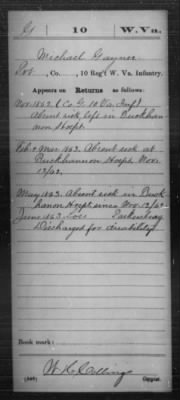 G 10 W. Va.
Michael Gaynor
Pvt, Co. , 10 Reg't W. Va. Infantry.
Appears on Returns as follows:
Nov. 1862. (Co G. 10 Va Inf)
Absent sick, left in Buckhan-
non Hospt.
Feb & Mar 1863. Absent sick at
Buckhannon Hospt. Nov.
12/62.
May 1863. Absent sick in Buck
hanon Hospt since Nov. 12/62
June 1863. Loss
Discharged for disability
Book mark:
Copyist.